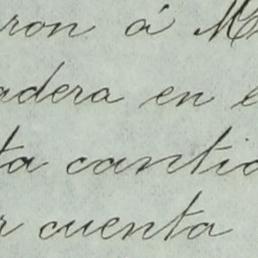 ron á M
adera en e
ta cantid
r cuenta